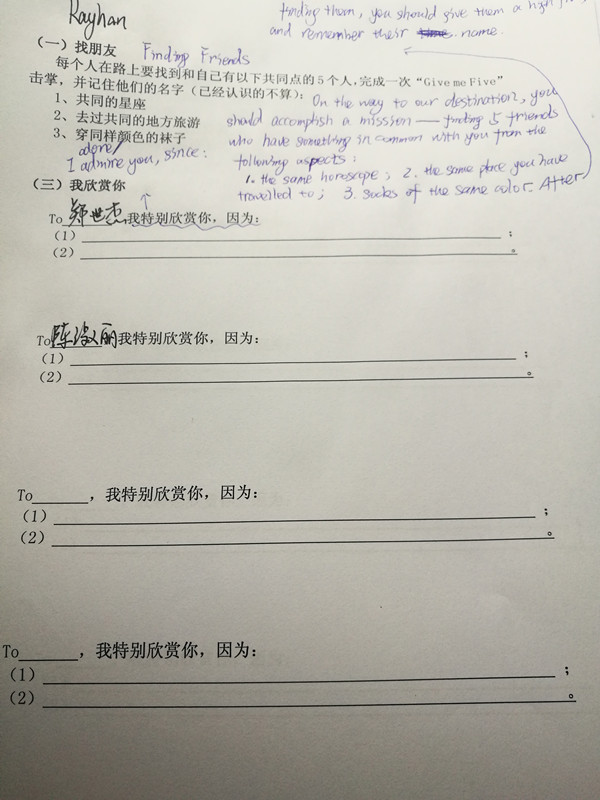 Rayhan
finding them, you should give them a high five,
and remember their name.
(一)找朋友 Finding Friends
每个人在路上要找到和自己有以下共同点的5个人,完成一次“Give me Five”
击掌,并记住他们的名字(已经认识的不算): On the way to our destination, you
1、共同的星座
should accomplish a mission — finding 5 friends
2、去过共同的地方旅游
who have something in common with you from the
3、穿同样颜色的袜子
following aspects:
adore/
I admire you, since:
1. the same horoscope; 2. the same place you have
travelled to; 3. socks of the same color. After
(三)我欣赏你
To 郑世杰,我特别欣赏你,因为:
(1) ;
(2) 。
To 陈淑丽我特别欣赏你,因为:
(1) ;
(2) 。
To ,我特别欣赏你,因为:
(1) ;
(2) 。
To ,我特别欣赏你,因为:
(1) ;
(2) 。